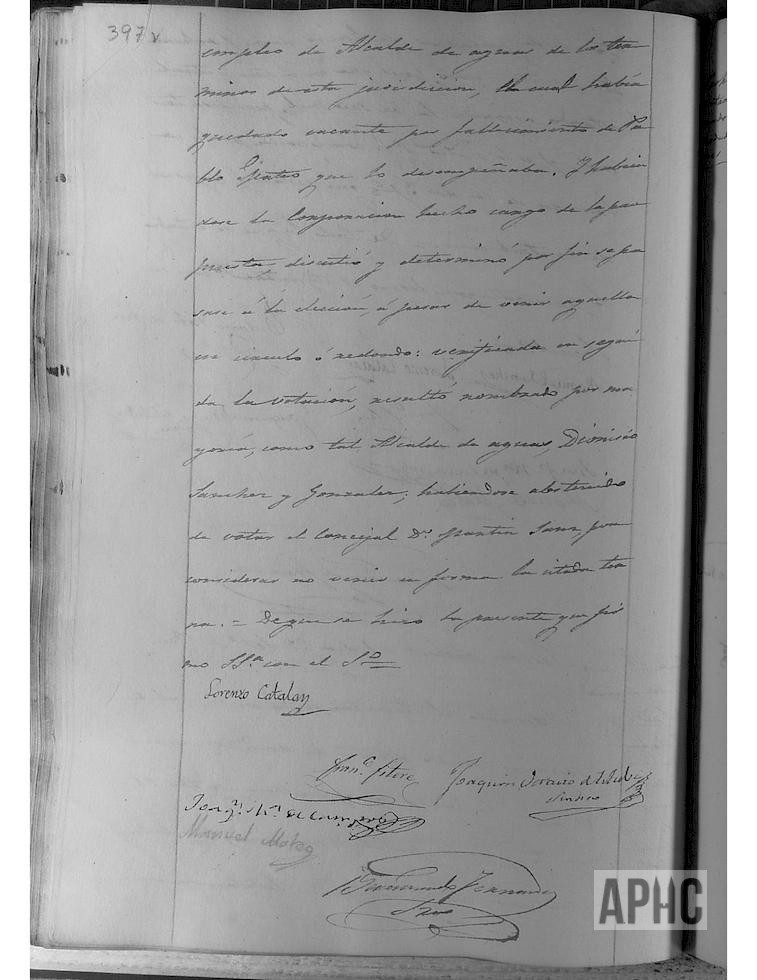 397 v
empleo de Alcalde de aguas de los ter
minos de esta jurisdiccion, el cual habia
quedado vacante por fallecimiento de Pa
blo que lo desempeñaba. Y habien
dose la Corporacion hecho cargo de la pro
puesta discutió y determinó por fin se pa
sase á la eleccion, á pesar de venir aquella
en circulo ó redondo: verificada en segui
da la votacion, resultó nombrado por ma
yoria, como tal Alcalde de aguas, Dionisio
Sanchez y Gonzalez, habiendose abstenido
de votar el Concejal Dn. Martin Sanz, por
considerar no venir en forma la citada ter
na. = De que se hizo la presente que fir
mo SSa con el So
Lorenzo Catalan
Franco. Fitero
Joaquin
Sindico
Joaqn. Ma. de Campos
Manuel
Fernando
APHC